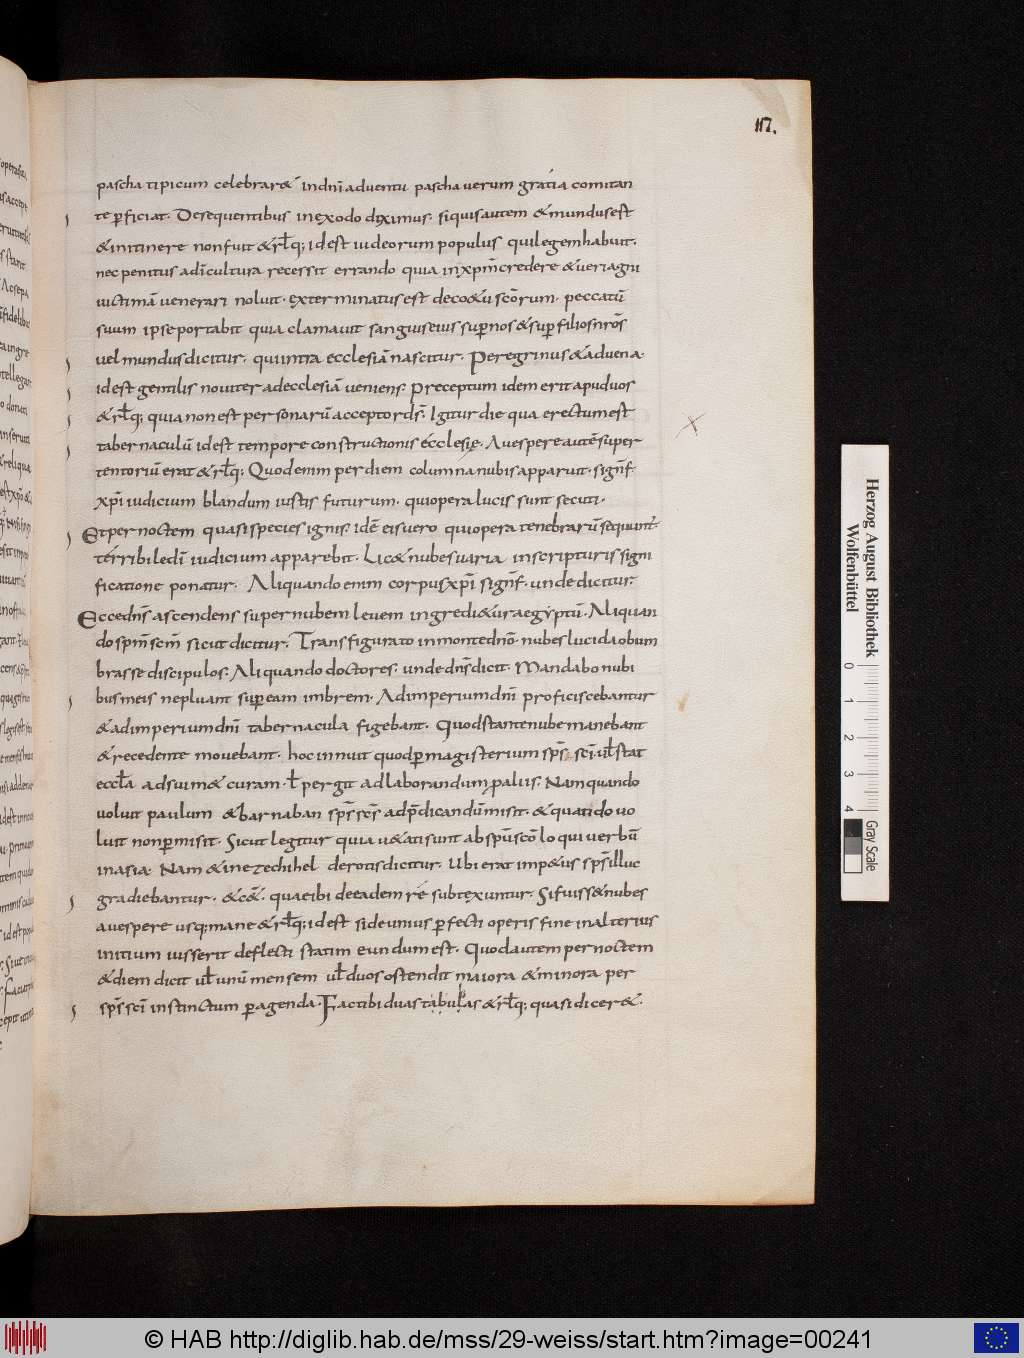 117.
pascha tipicum celebrar& indñi adventu pascha verum gratia comitan
te ꝑficiat. Desequentibus inexodo diximus. siquisautem &mundusest
&initinere nonfuit &rł̄q; idest iudeorum populus quilegemhabuit.
nec penitus adīcultura recessit errando quia inxp̄m̄credere &veriagni
uictimā venerari noluit. exterminatusest deco&u scōrum. peccatū
suum ipseportabit quia clamauit sanguiseius suꝑnos &suꝑfiliosnr̄os
uel mundusdicitur. quiintra ecclesiānascitur. Peregrinus &advena.
idest gentilis nouiter adecclesiā veniens. Preceptum idem erit apuduos
&rł̄q; quia nonest personarū acceptor ds̄. Igitur die qua erectumest
tabernaculū idest tempore constructionis ecclesię. Auespereautē super
tentoriū erat &rł̄q; Quodenim perdiem columnanubis apparuit. signf̄.
xp̄i iudicium blandum iustis futurum. quiopera lucis sunt secuti.
Etpernoctem quasispecies ignis. idē eisuero quiopera tenebrarū sequunt̄.
terribiledī iudicium apparebit. Lic& nubesuaria inscripturis signi
ficatione ponatur. Aliquando enim corpusxp̄i signf̄. unde dicitur.
Eccedn̄s ascendens supernubem leuem ingredi&uraegyptū. Aliquan
do sp̄m̄sc̄m̄ sicut dicitur. Transfigurato inmontedn̄o nubes lucida obum
brasse discipulos. Aliquando doctores. unde dn̄s dicit. Mandabo nubi
busmeis nepluant suꝑeam imbrem. Adimperiumdn̄i proficiscebantur
&adimperiumdn̄i tabernacula figebant. Quodstantenube manebant
&recedente mouebant. hoc innuit quodꝑmagisterium sp̄s sc̄i ul̄ stat
eccl̄a adsuim& curam. ł pergit adlaborandum ꝓaliis. Namquando
uoluit paulum &barnaban sp̄s sc̄s adp̄dicandū misit. &quando uo
luit nonꝑmisit. Sicut legitur quia u&atisunt abspūscō loqui uerbū
inasia. Nam &inezechihel derotisdicitur. Ubi erat imp&us sp̄s illuc
gradiebantur. &c&. quaeibi deeadem re subtexuntur. Sifuiss&nubes
auespere usq;mane &rł̄q; idest sideunius ꝑfecti operis fine inalterius
initium iusserit deflecti statim eundumest. Quodautem pernoctem
&diem dicit ul̄ unū mensem ul̄ duos ostendit maiora &minora per
sp̄s sc̄i instinctum ꝑagenda. Factibi duas tubulas &rł̄q; quasi dicer&.
Herzog August Bibliothek
Wolfenbüttel
0 1 2 3 4
Gray Scale
© HAB http://diglib.hab.de/mss/29-weiss/start.htm?image=00241